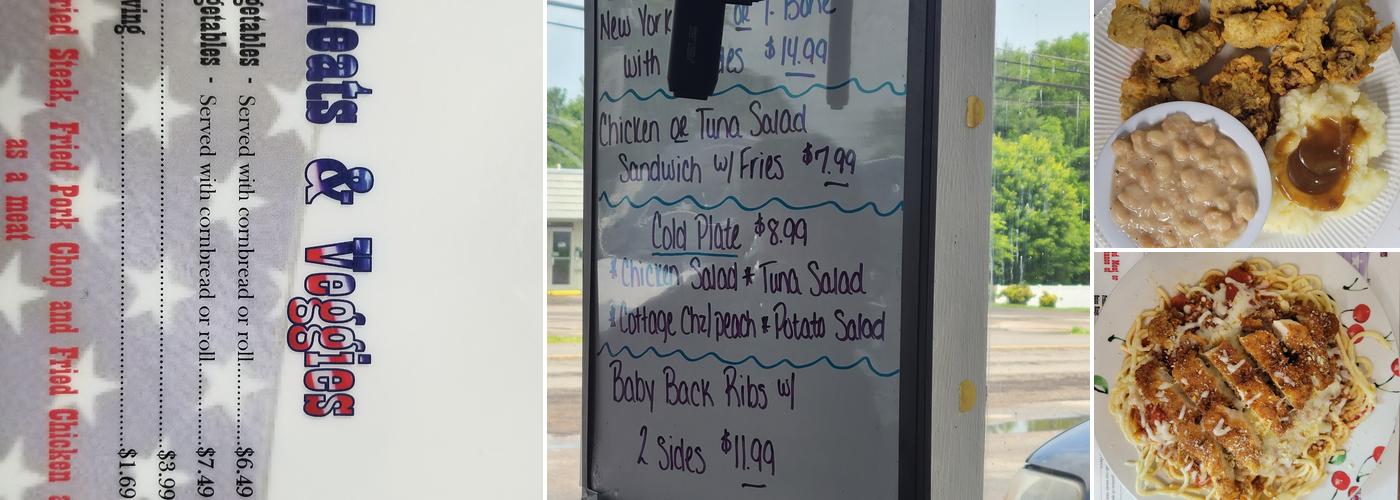 Meats & Veggies
getables - Served with cornbread or roll..........$6.49
getables - Served with cornbread or roll..........$7.49
$3.99
ving..........$1.69
ried Steak, Fried Pork Chop and Fried Chicken a
as a meat
New York or T. Bone
with des $14.99
Chicken or Tuna Salad
Sandwich w/ Fries $7.99
Cold Plate $8.99
*Chicken Salad * Tuna Salad
*Cottage Chz/peach * Potato Salad
Baby Back Ribs w/
2 Sides $11.99